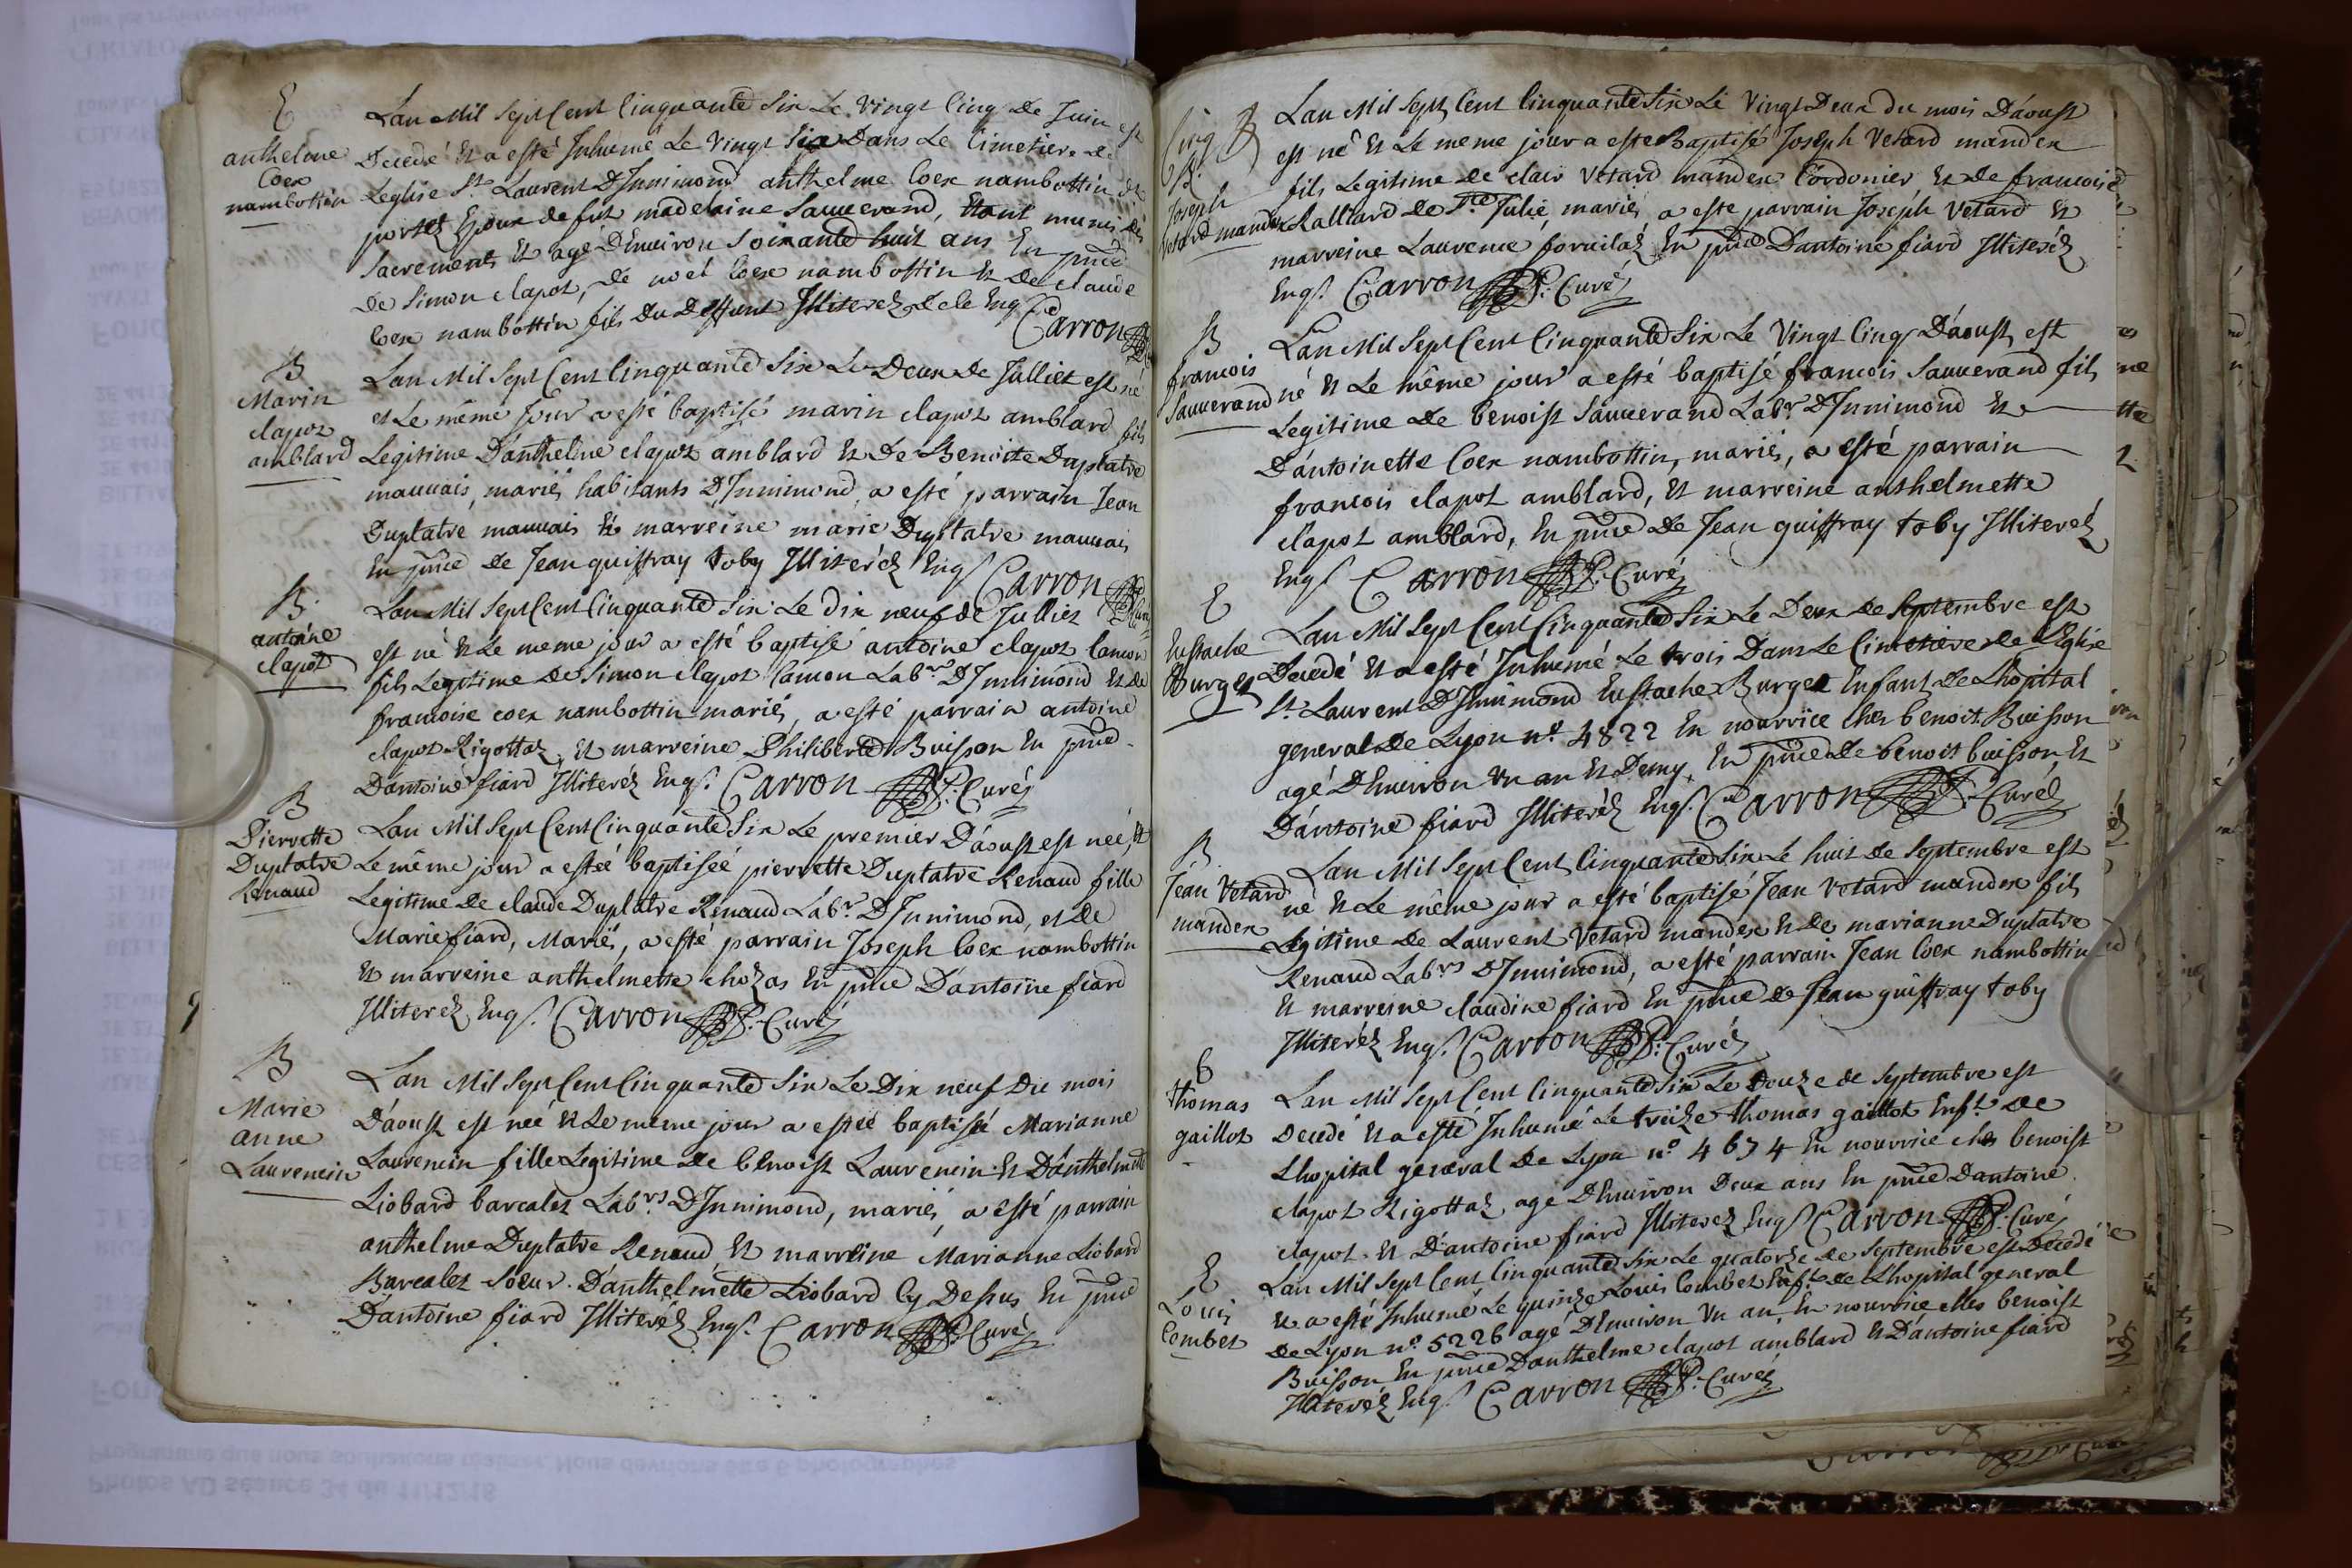 E
anthelme
Coex
nambottin
Lan Mil Sept Cent Cinquante Six Le vingt Cinq De Juin est
Decedé Et a esté Inhumé Le Vingt Six Dans Le Cimetiere de
Leglise St. Laurent D'Innimond anthelme Coex nambottin dit
portez Epoux de fut madelaine Sauverand, Etant munis des
Sacrements Et agé D'Environ Soixante huit ans En pnce
De Simon Clapot, De noel Coex nambottin Et De Claude
Coex nambottin fils Du Deffunt Illiterez De le Enq. Carron
B
Marin
clapot
amblard
Lan Mil Sept Cent Cinquante Six Le Deux de Julliet est né
et Le même Jour a esté baptisé marin clapot amblard fils
Legitime D'anthelme clapot amblard Et De Benoite Duplatre
mauvais, mariés habitants D'Innimond, a esté parrain Jean
Duplatre mauvais Et marreine marie Duplatre mauvais
En pnce de Jean guiffray toby Illiteréz Enq. Carron
B
antoine
clapot
Lan Mil Sept Cent Cinquante Six Le dix neuf de Julliet
est né Et Le meme jour a esté baptisé antoine clapot Camon
fils Legitime De Simon clapot Camon Labr. D'Innimond Et de
francoise coex nambottin mariés, a esté parrain antoine
clapot Rigottaz, Et marreine Philiberte Buisson En pnce
D'antoine fiard Illiteréz Enq. Carron P. Curé
B
Pierrette
Duplatre
Renaud
Lan Mil Sept Cent Cinquante Six Le premier D'aoust est née, Et
Le même jour a esté baptiseé pierrette Duplatre Renaud fille
Legitime De claude Duplatre Renaud Labr. D'Innimond, et de
Marie fiard, Mariés, a esté parrain Joseph Coex nambottin
Et marreine anthelmette chozas En pnce D'antoine fiard
Illiterez Enq. Carron P. Curé
B
Marie
anne
Laurencin
Lan Mil Sept Cent Cinquante Six Le Dix neuf Du mois
D'aoust est neé Et Le même jour a esté baptisé Marianne
Laurencin fille Legitime De benoist Laurencin Et D'anthelmette
Liobard barcalet Labrs. D'Innimond, mariés, a esté parrain
anthelme Duplatre Renaud Et marreine Marianne Liobard
Barcalet Soeur D'anthelmette Liobard Cy Dessus En pnce
D'antoine fiard Illiteréz Enq. Carron P. Curé
B
Joseph
Vetard mandex
Lan Mil Sept Cent Cinquante Six Le Vingt Deux du mois D'aoust
est né Et Le meme jour a esté Baptisé Joseph Vetard mandex
fils Legitime De clair Vetard mandex Cordonier, Et De francoise
Ralliard De Ste. Julie, mariés, a esté parrain Joseph Vetard Et
marreine Laurence En pnce D'antoine fiard Illiteréz
Enq. Carron P. Curé
B
francois
Sauverand
Lan Mil Sept Cent Cinquante Six Le Vingt Cinq D'aoust, est
né Et Le même jour a esté baptisé francois Sauverand fils
Legitime De benoist Sauverand Labr. D'Innimond Et
D'antoinette Coex nambottin, mariés, a esté parrain
francois clapot amblard, Et marreine anthelmette
clapot amblard, En pnce De Jean guiffray toby Illiteréz
Enq. Carron P. Curé
E
Eustache
Burget
Lan Mil Sept Cent Cinquante Six Le Deux de Septembre est
Decedé Et a esté Inhumé Le trois Dans Le Cimetiere de L'Eglise
St. Laurent D'Innimond Eustache Burget Enfant de Lhopital
general De Lyon no. 4822 En nourrice chés benoit Buisson
agé D'Environ Un an Et Demy, En pnce de benoit buisson, Et
D'antoine fiard Illiteréz Enq. Carron P. Curé
B
Jean Vetard
mandex
Lan Mil Sept Cent Cinquante Six Le huit de Septembre est
né Et Le même jour a esté baptisé Jean Vetard mandex fils
Legitime De Laurent Vetard mandex Et De marianne Duplatre
Renaud Labrs D'Innimond, a esté parrain Jean Coex nambottin
Et marreine claudine fiard En pnce de Jean guiffray toby
Illiteréz Enq. Carron P. Curé
E
thomas
gaillot
Lan Mil Sept Cent Cinquante Six Le Douze de Septembre est
Decedé Et a esté Inhumé Le treize thomas gaillot Enft. De
Lhopital general De Lyon no. 4674 En nourrice chés benoist
clapot Rigottaz, agé D'Environ Deux ans En pnce D'antoine
clapot Et D'antoine fiard Illiterez Enq. Carron P. Curé
E
Louis
Combet
Lan Mil Sept Cent Cinquante Six Le quatorze De Septembre est Decedé
Et a esté Inhumé Le quinze Louis Combet Enft. de Lhopital general
De Lyon no. 5226 agé D'Environ Un an, En nourrice chés benoist
Buisson En pnce D'anthelme clapot amblard Et D'antoine fiard
Illiteréz Enq. Carron P. Curé